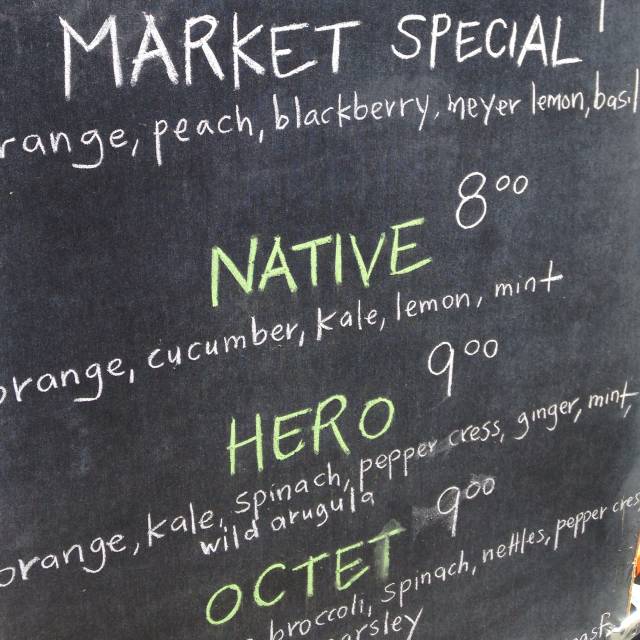 MARKET SPECIAL
range, peach, blackberry, meyer lemon, basil
8⁰⁰
NATIVE
orange, cucumber, kale, lemon, mint
9⁰⁰
HERO
orange, kale, spinach, pepper cress, ginger, mint,
wild arugula
9⁰⁰
OCTET
broccoli, spinach, nettles, pepper cres
arsley